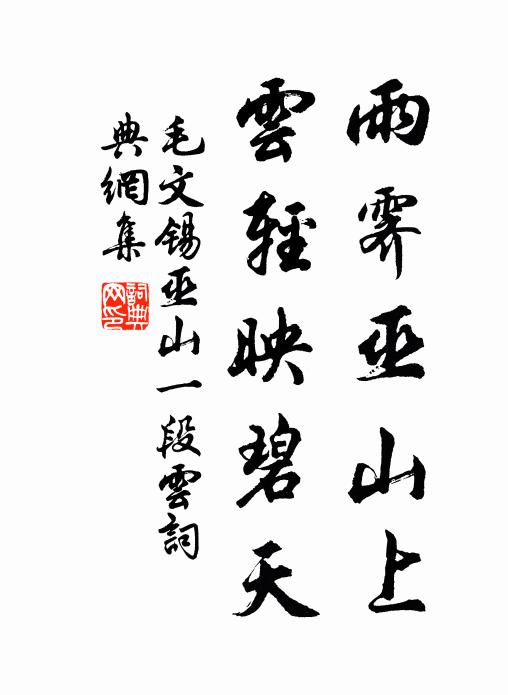 雨霽巫山上
雲輕映碧天
毛文錫巫山一段雲詞
典網集
詞典網印